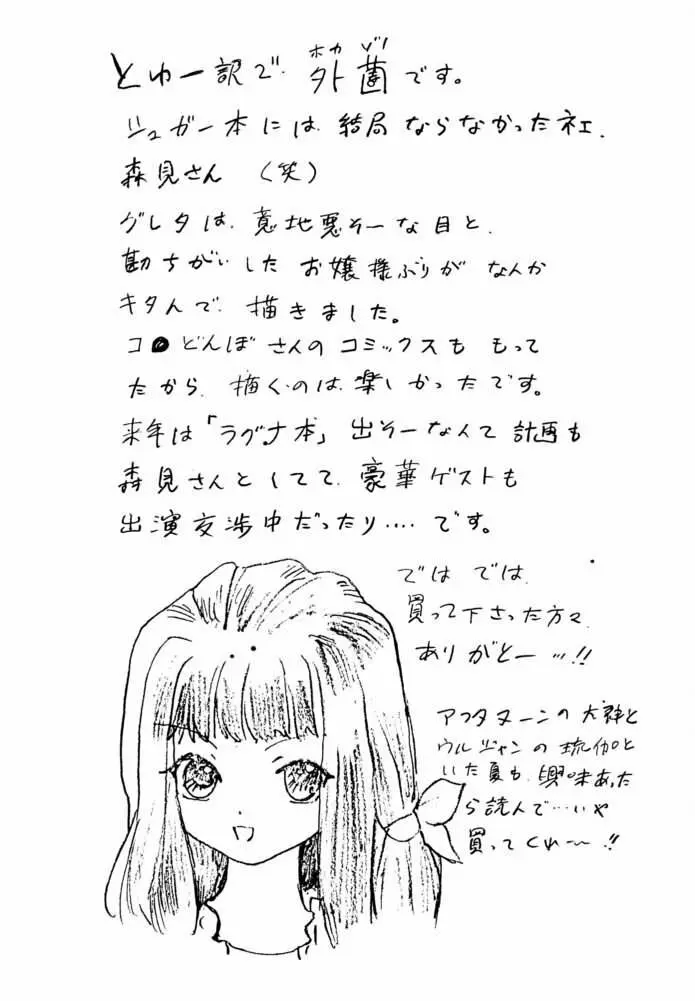 ホカ ゾノ
とゆー訳で、外薗です。
シュガー本には、結局ならなかったネェ、
森見さん（笑）
グレタは、意地悪そーな目と、
勘ちがいしたお嬢様ぶりがなんか
キタんで、描きました。
コ●どんぼさんのコミックスももって
たから、描くのは、楽しかったです。
来年は「ラグナ本」出そーなんて計画も
森見さんとしてて、豪華ゲストも
出演交渉中だったり‥‥です。
ではでは、
買って下さった方々、
ありがとー…!!
アフタヌーンの犬神と
ウルジャンの琉伽と
いた夏も、興味あった
ら読んで…いや
買ってくれ〜!!